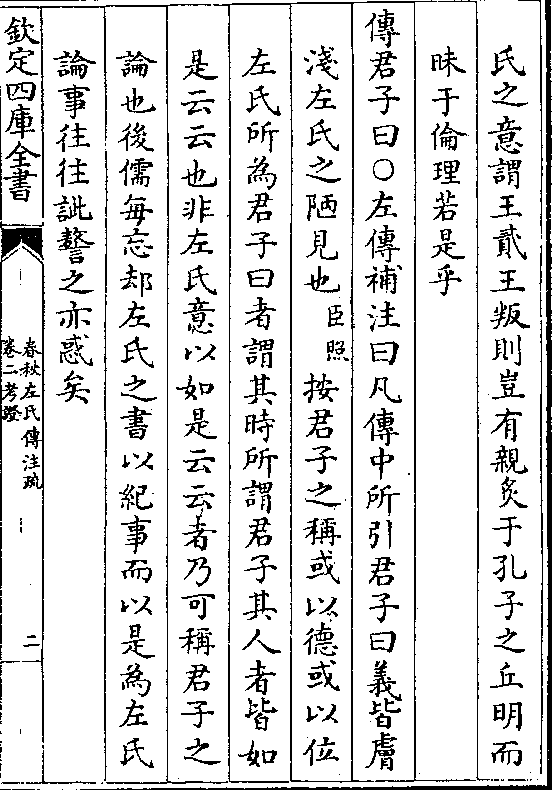 氏之意謂王貳王叛則豈有親炙于孔子之丘明而
昧于倫理若是乎
傳君子曰○左傳補注曰凡傳中所引君子曰義皆膚
淺左氏之陋見也臣照按君子之稱或以德或以位
左氏所為君子曰者謂其時所謂君子其人者皆如
是云云也非左氏意以如是云云者乃可稱君子之
論也後儒每忘却左氏之書以紀事而以是為左氏
論事往往訿謷之亦惑矣
欽定四庫全書
春秋左氏傳注疏
卷二考證
二